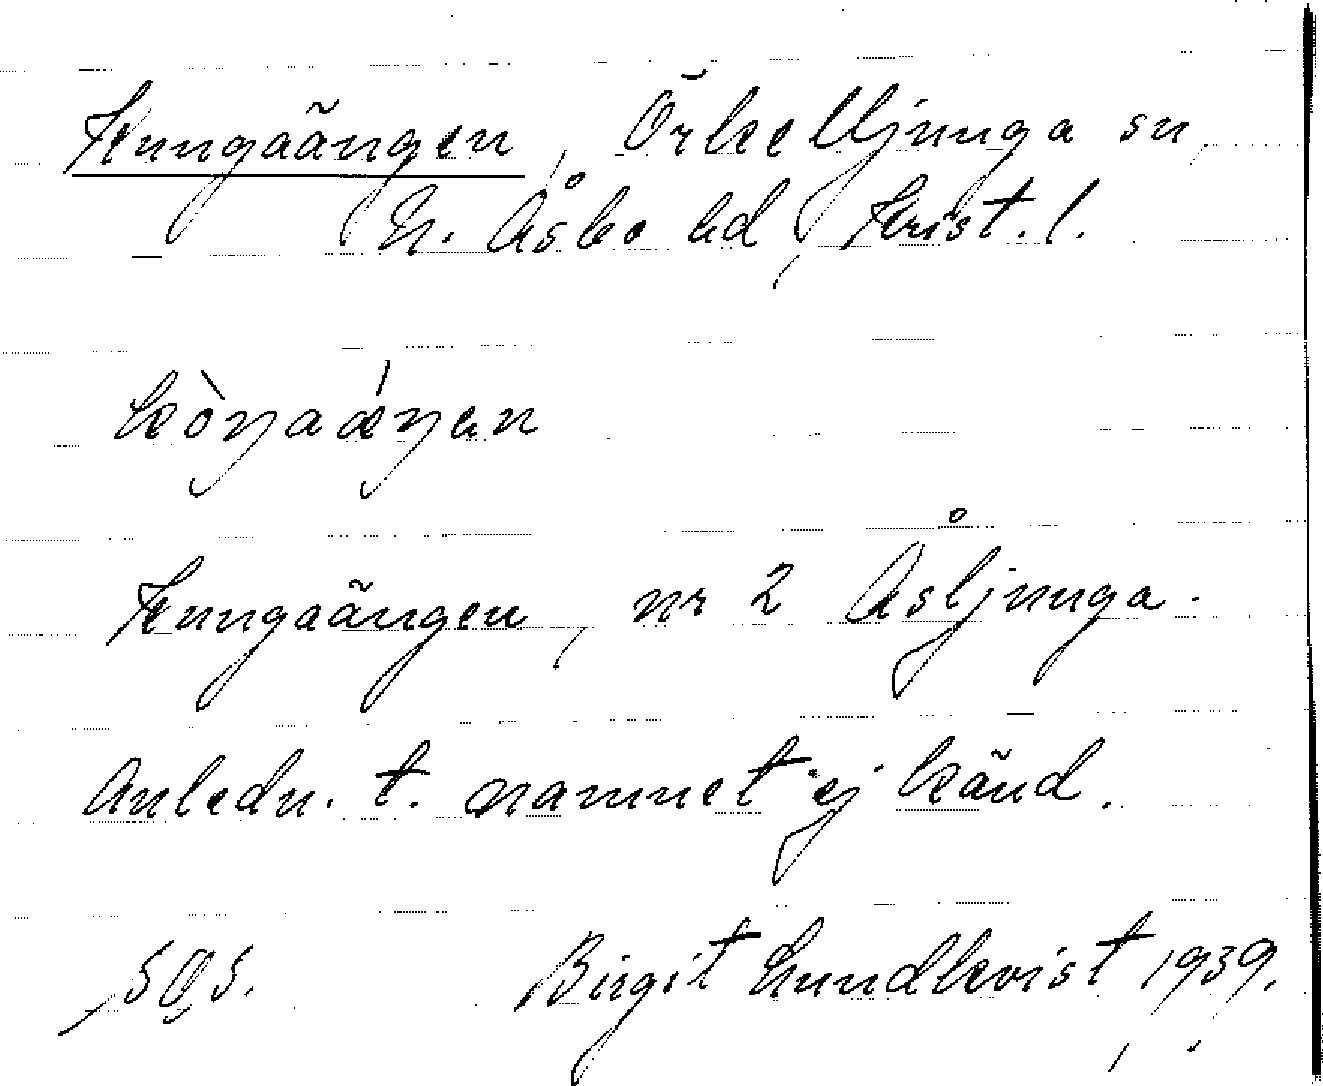 Kungaängen, Örkelljunga sn,
N. Åsbo hd, Krist. l.
kòŋaáŋen
Kungaängen, nr 2 Åsljunga.
Anledn. t. namnet ej känd.
Birgit Lundkvist 1939.